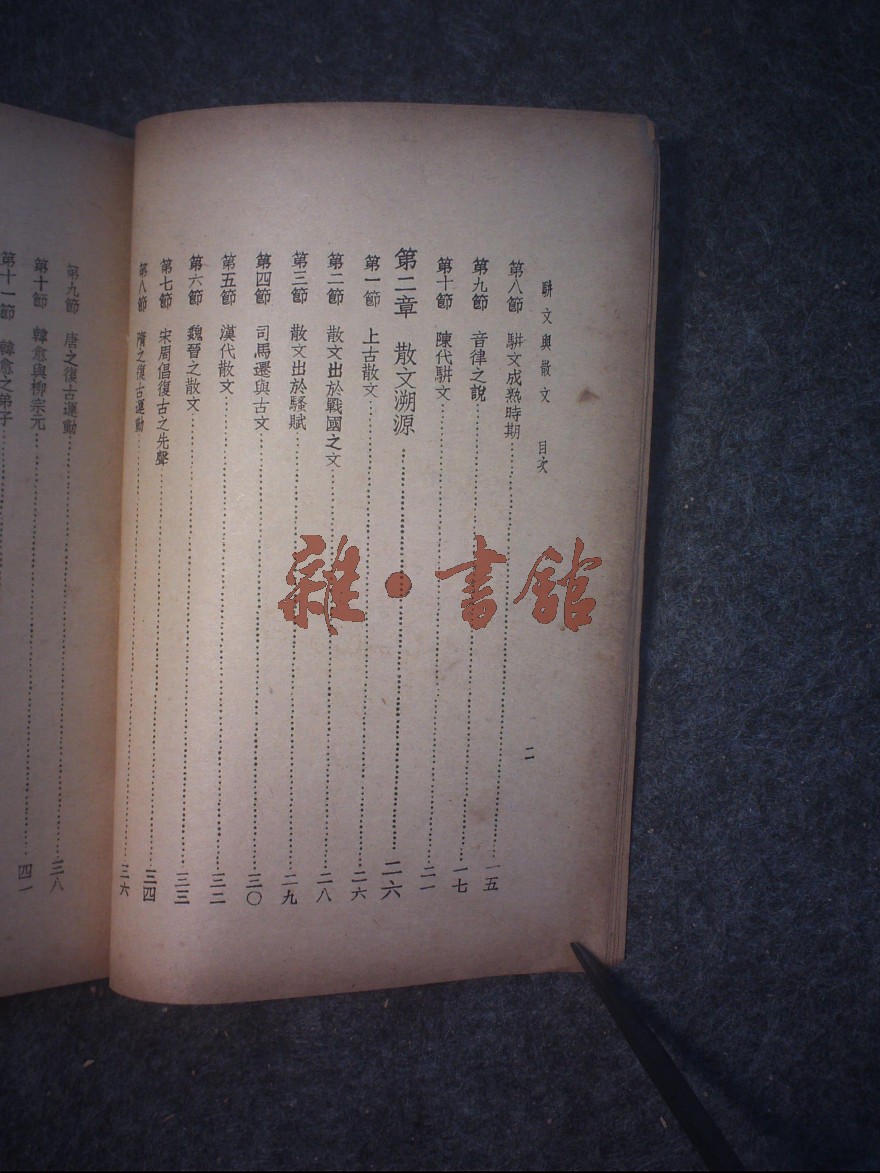 駢文與散文　目次　二
第八節　駢文成熟時期 一五
第九節　音律之說 一七
第十節　陳代駢文 二一
第二章　散文溯源 二六
第一節　上古散文 二六
第二節　散文出於戰國之文 二八
第三節　散文出於騷賦 二九
第四節　司馬遷與古文 三〇
第五節　漢代散文 三二
第六節　魏晉之散文 三三
第七節　宋周倡復古之先聲 三四
第八節　隋之復古運動 三六
第九節　唐之復古運動 三八
第十節　韓愈與柳宗元 四一
第十一節　韓愈之弟子
雜·書館